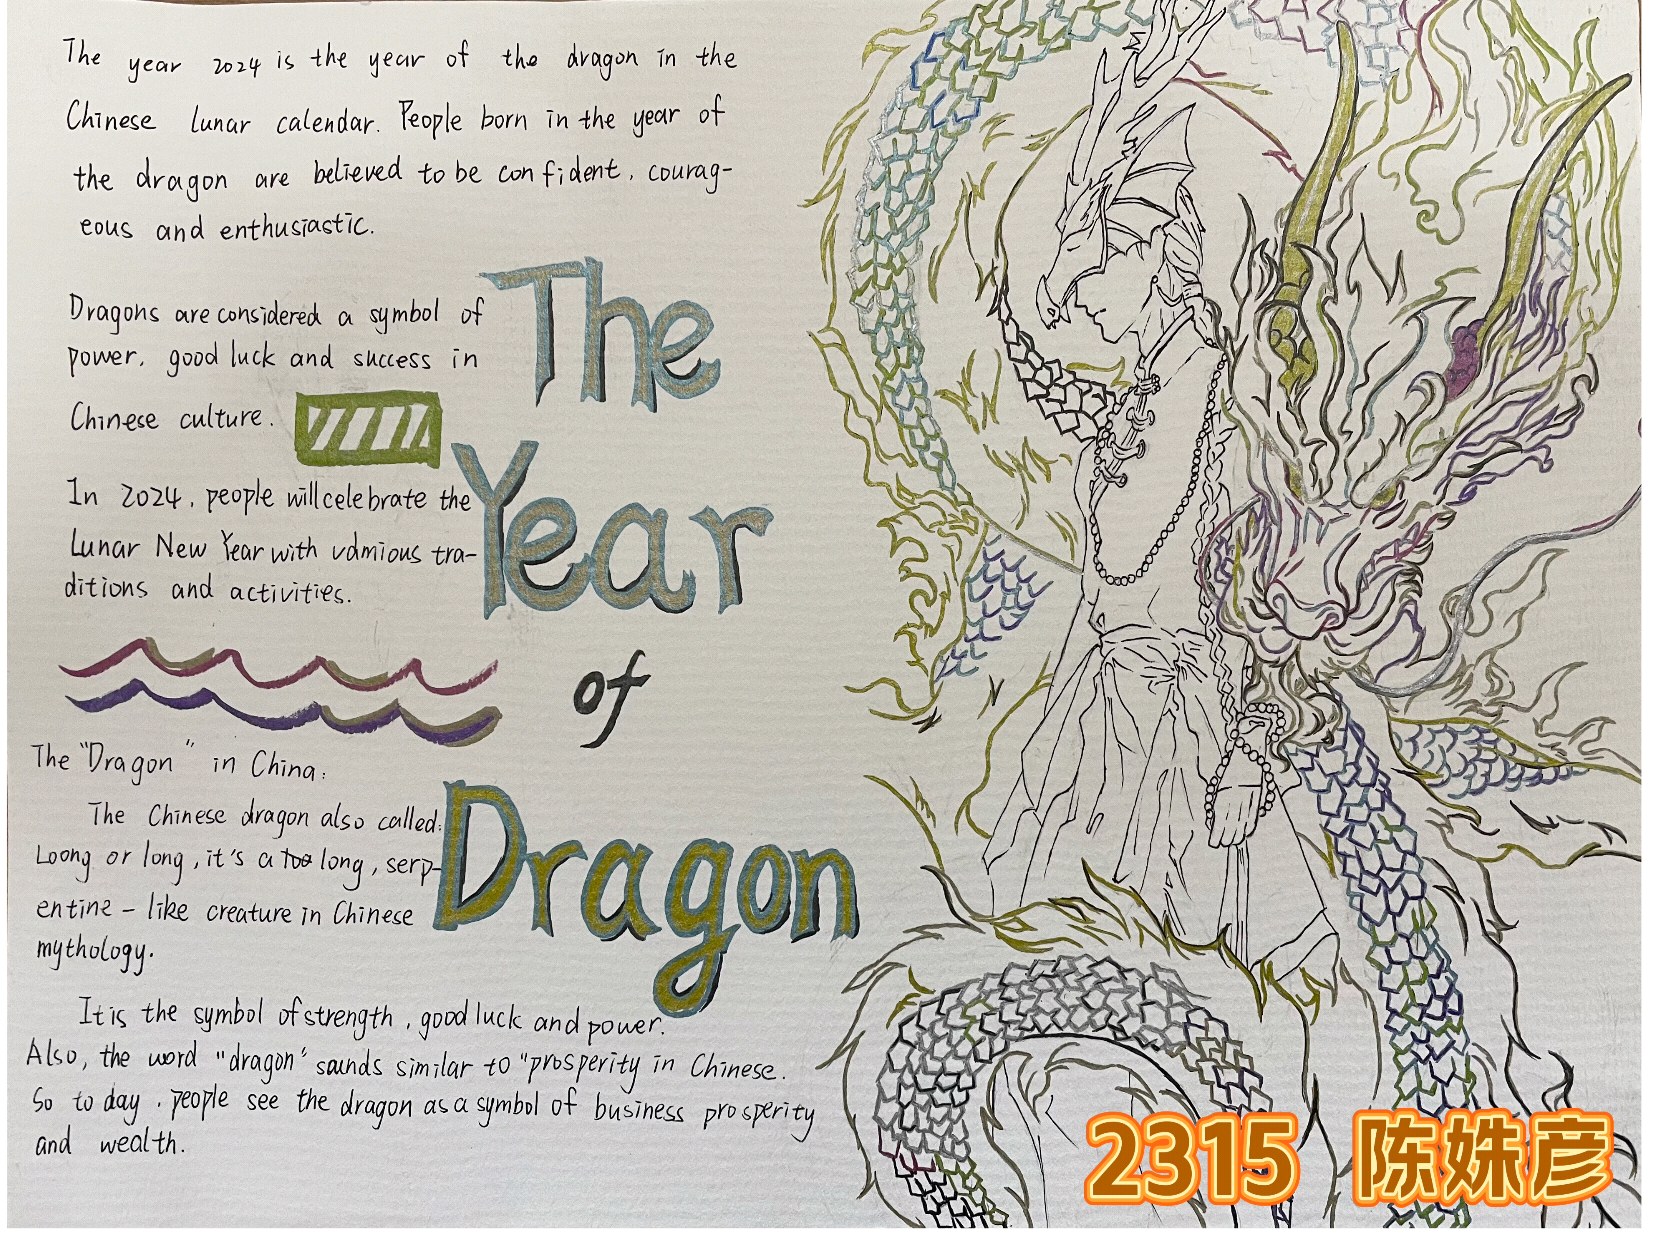 The year 2024 is the year of the dragon in the
Chinese lunar calendar. People born in the year of
the dragon are believed to be confident, courag-
eous and enthusiastic.
Dragons are considered a symbol of
power, good luck and success in
Chinese culture.
In 2024, people will celebrate the
Lunar New Year with vdmious tra-
ditions and activities.
The
Year
of
Dragon
The "Dragon" in China:
The Chinese dragon also called:
Loong or long, it's a long, serp-
entine - like creature in Chinese
mythology.
It is the symbol of strength, good luck and power.
Also, the word "dragon" sounds similar to "prosperity in Chinese.
So today, people see the dragon as a symbol of business prosperity
and wealth.
2315 陈姝彦